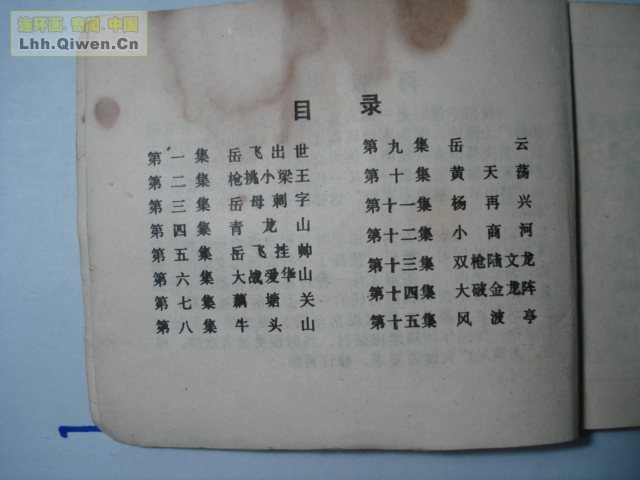 连环画.奇闻.中国
Lhh.Qiwen.Cn
目录
第一集 岳飞出世
第二集 枪挑小梁王
第三集 岳母刺字
第四集 青龙山
第五集 岳飞挂帅
第六集 大战爱华山
第七集 藕塘关
第八集 牛头山
第九集 岳云
第十集 黄天荡
第十一集 杨再兴
第十二集 小商河
第十三集 双枪陆文龙
第十四集 大破金龙阵
第十五集 风波亭